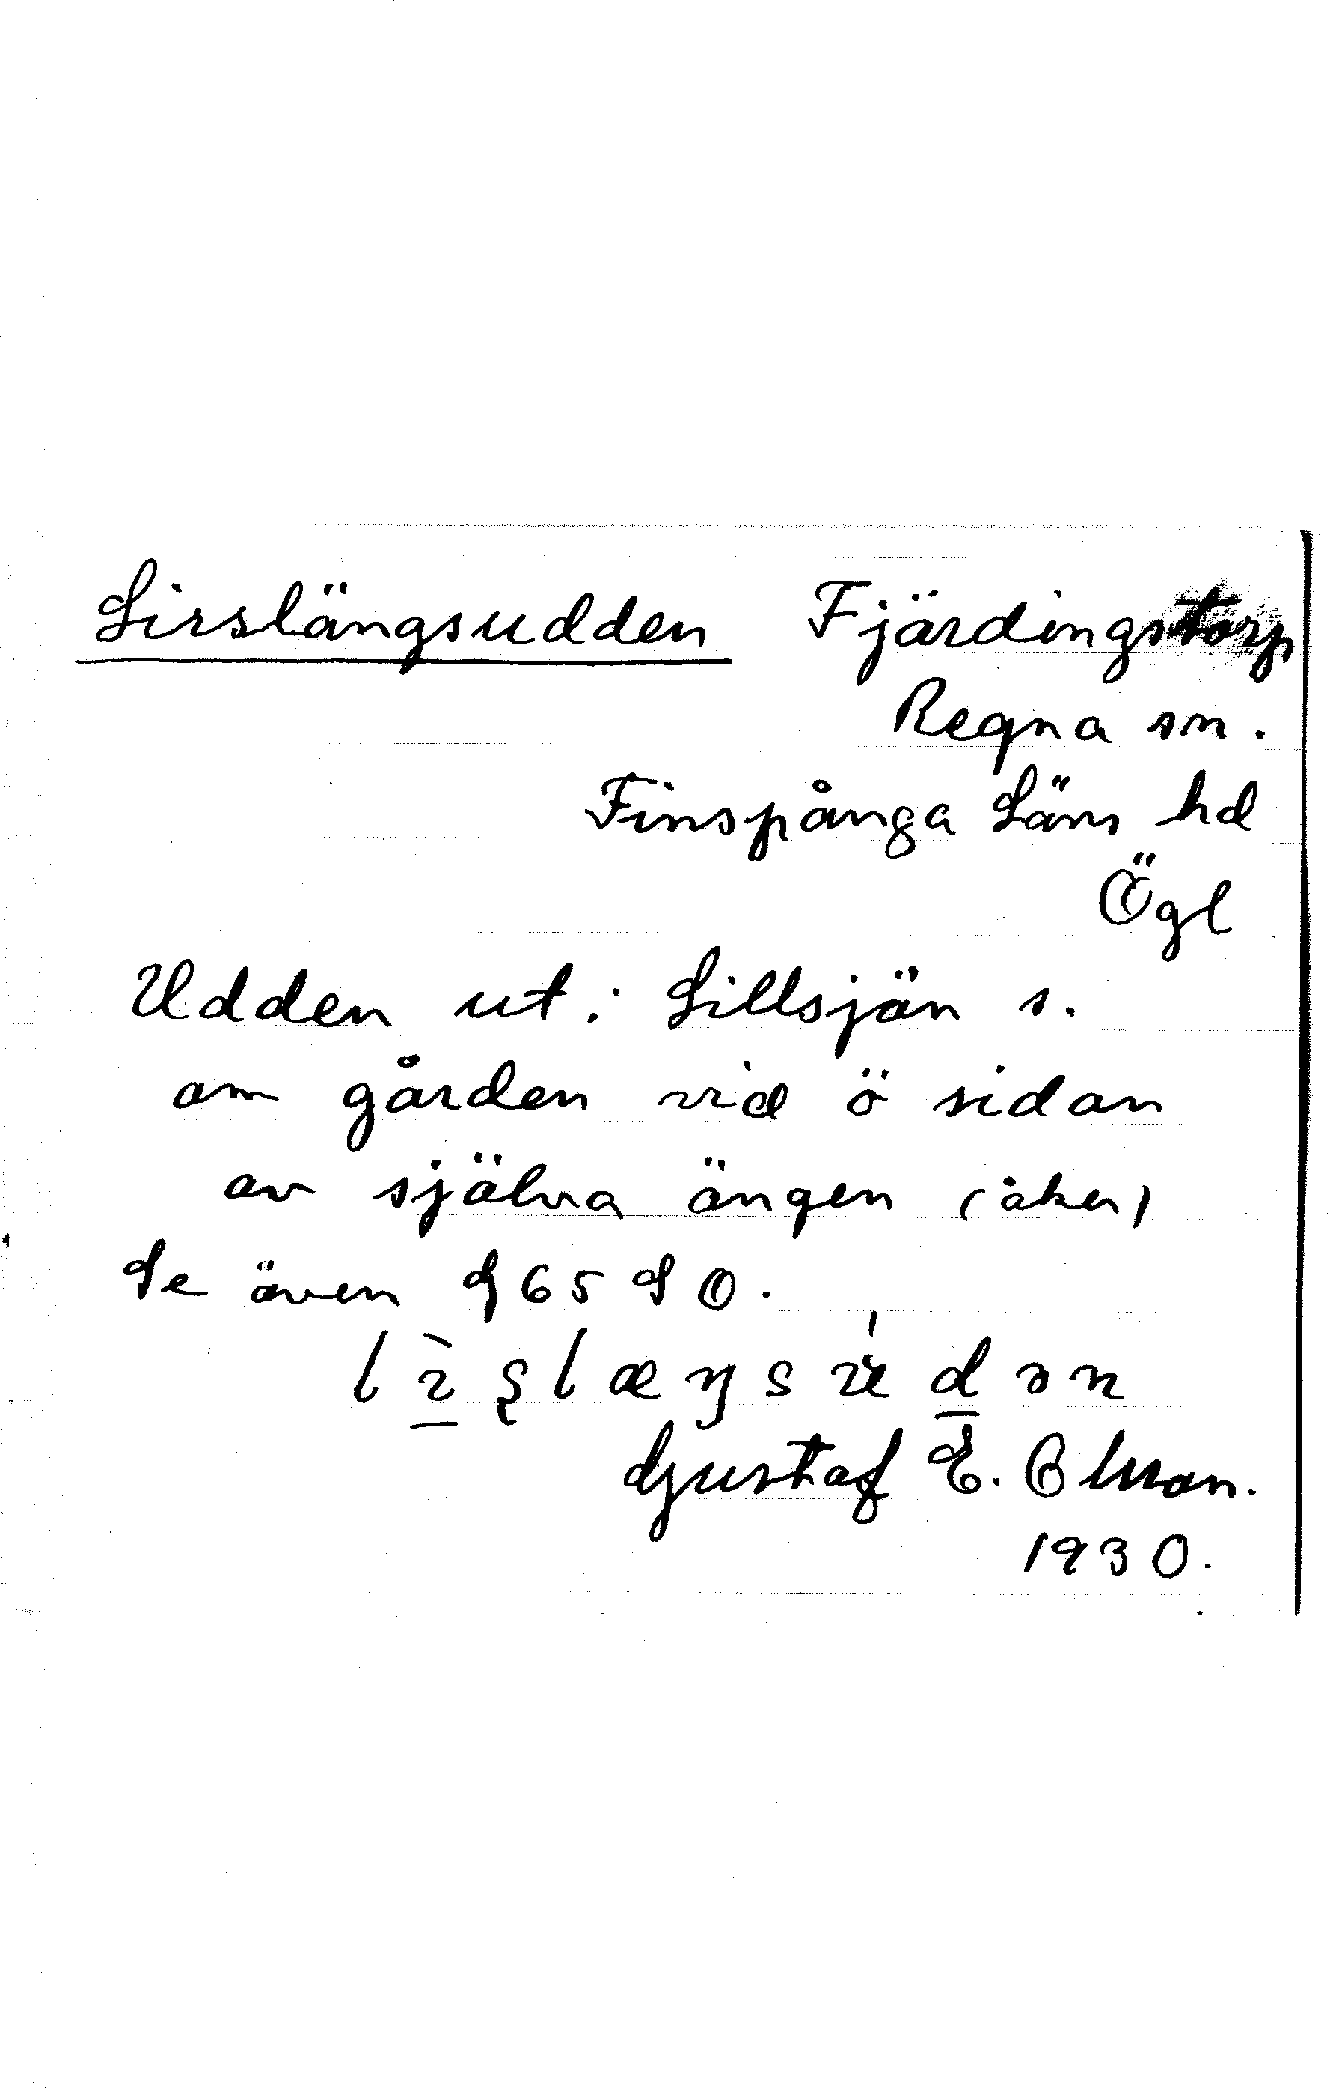 Lirslängsudden Fjärdingstorp
Regna sn.
Finspånga Läns hd
Ögl
Udden ut i Lillsjön s.
om gården vid ö sidan
av själva ängen (åker)
Se även 965 SO.
Gustaf E. Olsson.
1930.